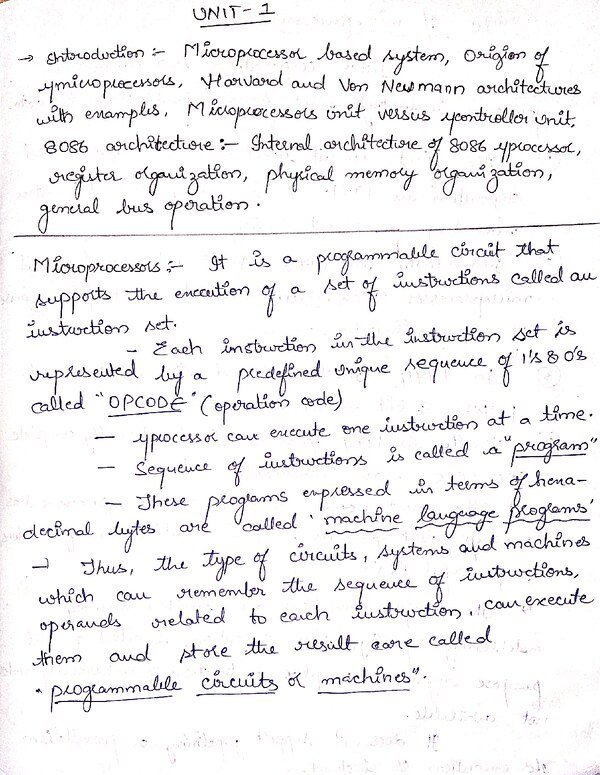 UNIT-1
→ Introduction :- Microprocessor based system, Origion of
μmicroprocessors, Harvard and Von Newmann architectures
with examples, Microprocessors unit versus μcontroller unit,
8086 architecture :- Internal architecture of 8086 μprocessor,
register organization, physical memory organization,
general bus operation.
Microprocessors :- It is a programmable circuit that
supports the execution of a set of instructions called an
instruction set.
- Each instruction in the instruction set is
represented by a predefined unique sequence of 1's & 0's
called "OPCODE" (operation code)
- μprocessor can execute one instruction at a time.
- Sequence of instructions is called a "program"
- These programs expressed in terms of hexa-
decimal bytes are called 'machine language programs'
→ Thus, the type of circuits, systems and machines
which can remember the sequence of instructions,
operands related to each instruction, can execute
them and store the result are called
"programmable circuits or machines".